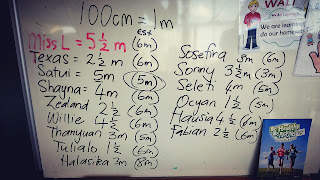 100cm = 1m
Est
Miss L = 5 1/2 m (6m)
Texas = 2 1/2 m (6m)
Satui = 5m (5m)
Shayna = 4m (6m)
Zealand 2 1/2 (6m)
Willie 4 1/2 (6m)
Thamyuan 3m (5m)
Tulialo 1 1/2 (6m)
Halasika 3m (8m)
Sosefina 3m (6m)
Sonny 3 1/2 m (3m)
Seleti 4m (5m)
Ocyan 1 1/2 (5m)
Hausia 4 1/2 (6m)
Fabian 2 1/2 (6m)
WALT
We are learning
do our homework